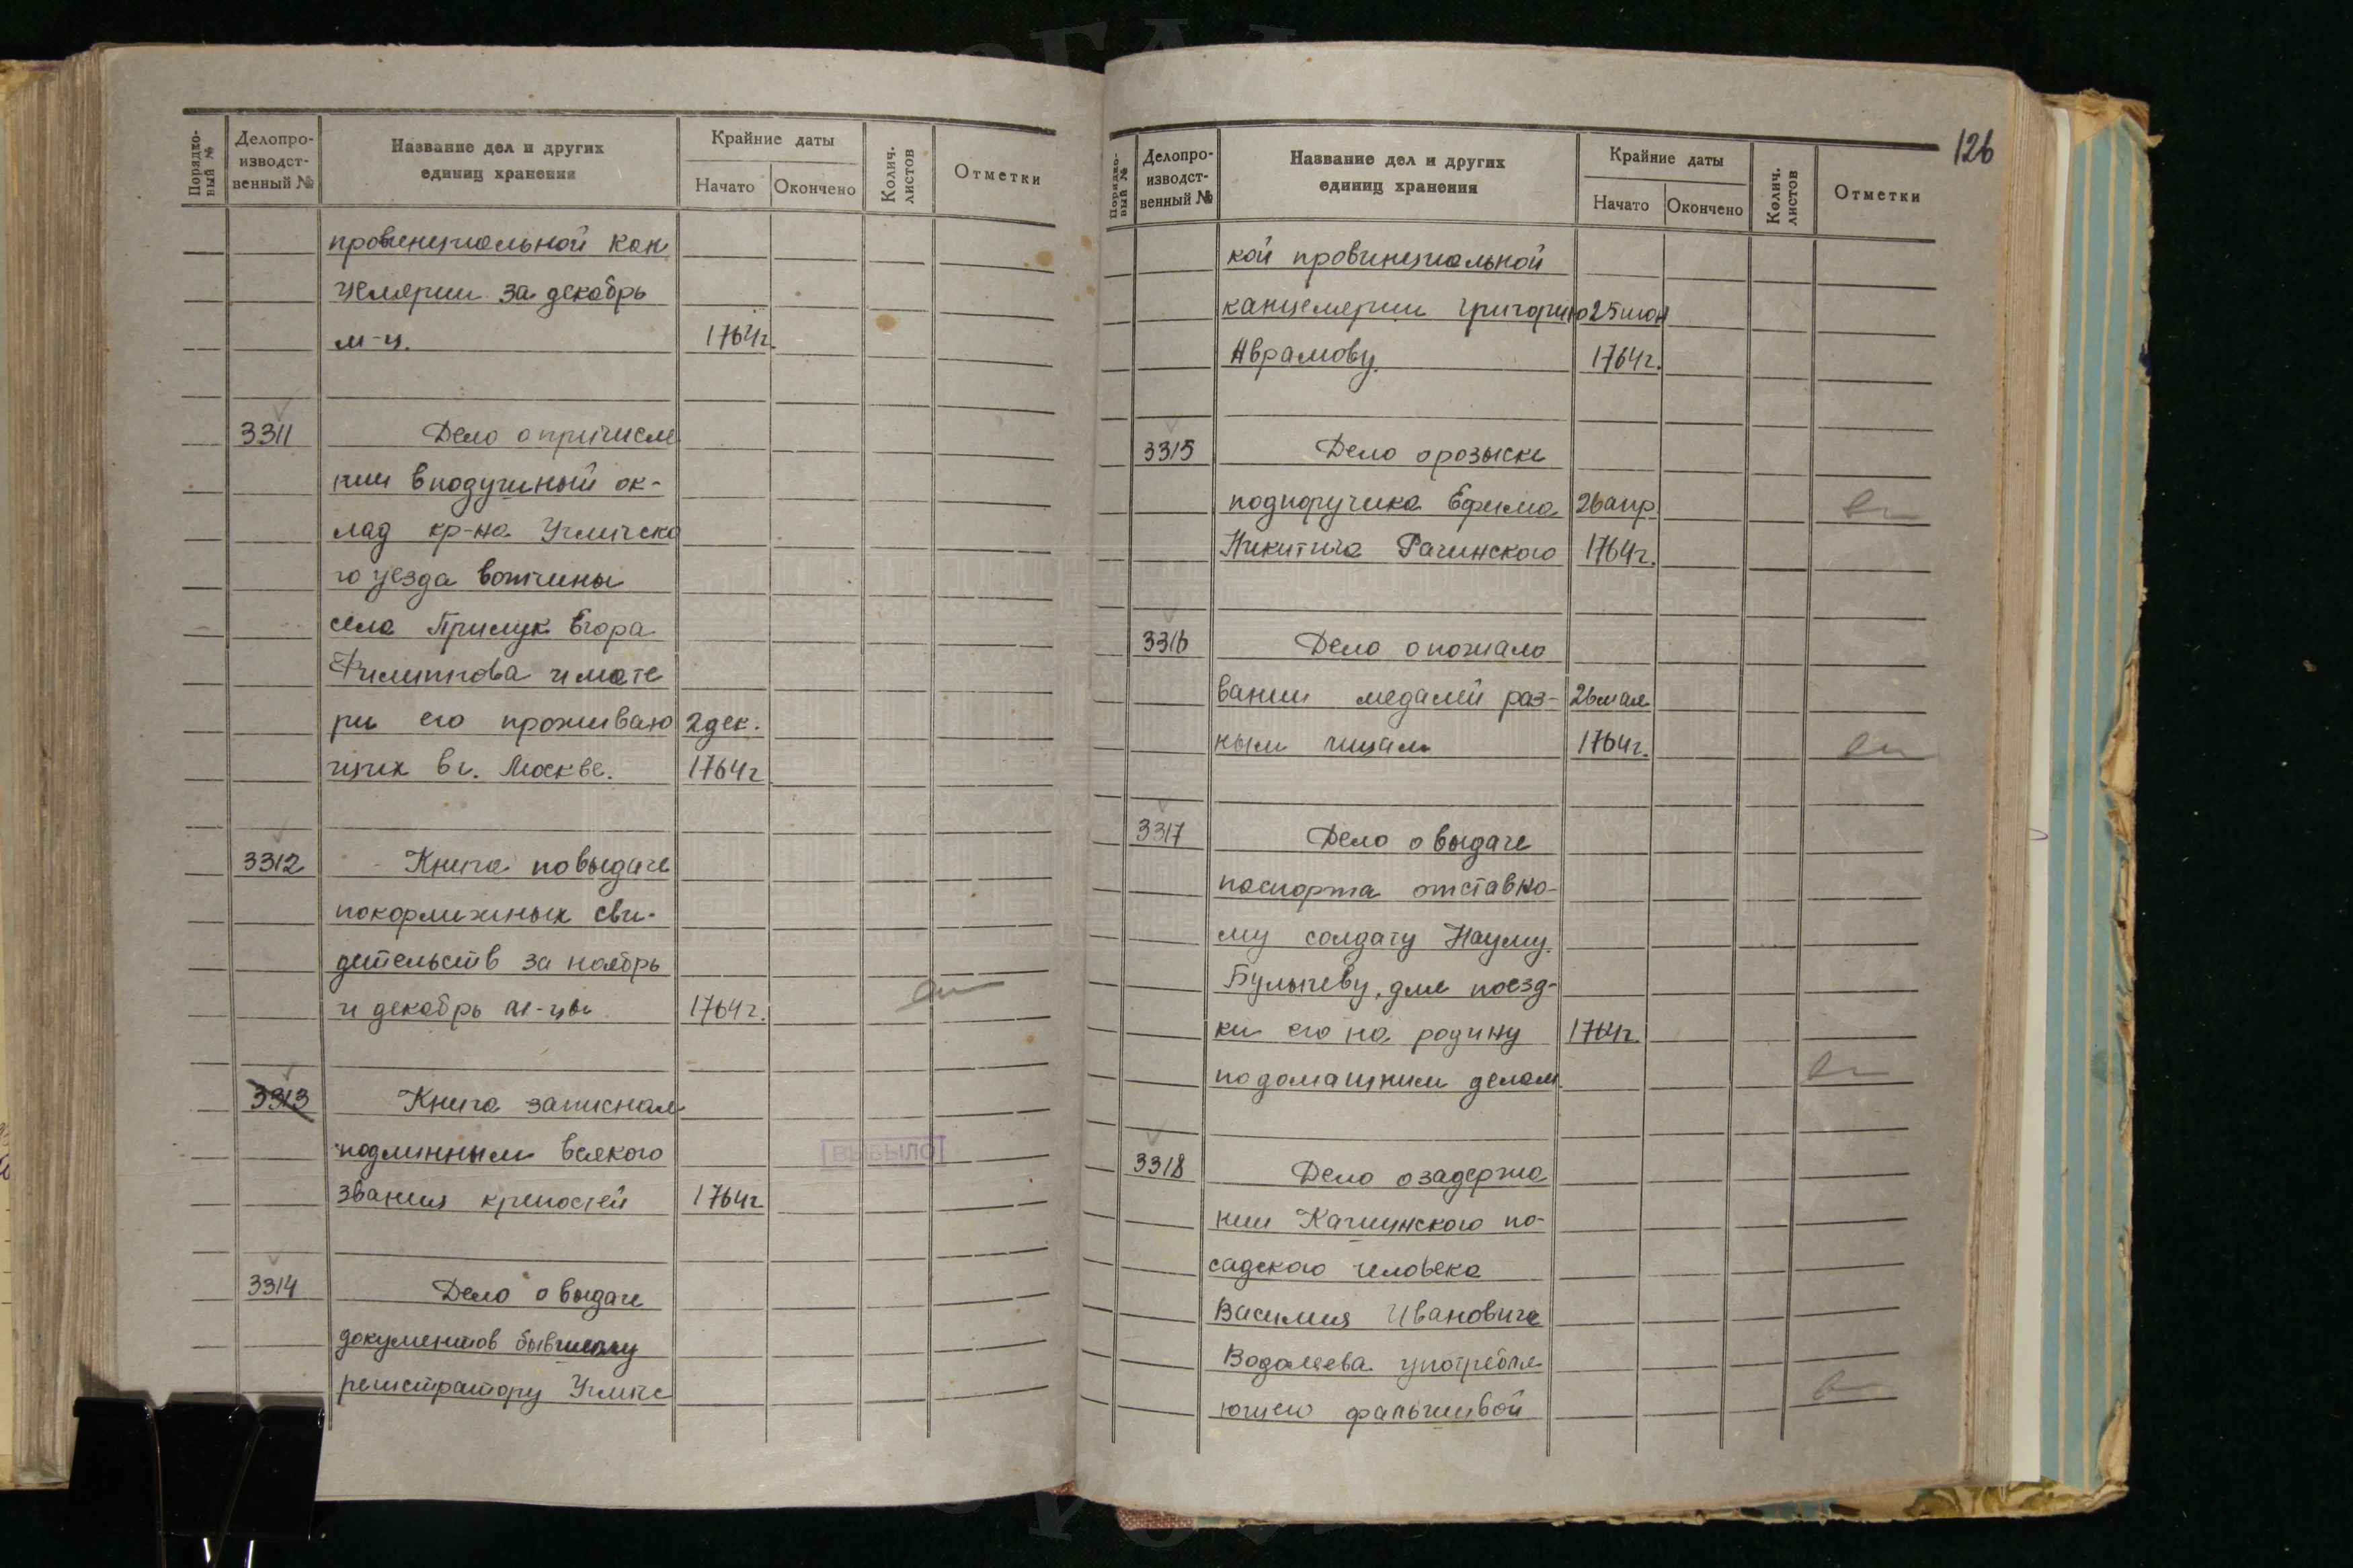 Порядко-
вый №
Делопро-
изводст-
венный №
Название дел и других
единиц хранения
Крайние даты
Начато
Окончено
Колич.
листов
Отметки
провинциальной кан
целярии за декабрь
м-ц. 1764г.
3311 Дело о причисле
нии в подушный ок-
лад кр-на Угличско
го уезда вотчины
села Прилук Егора
Филиппова и мате
ри его проживаю 2 дек.
щих в г. Москве. 1764г
3312 Книга по выдаче
покормежных сви-
детельств за ноябрь
и декабрь м-цы 1764г.
3313 Книга записная
подлинным всякого
ВЫБЫЛО
звания крепостей 1764г
3314 Дело о выдаче
документов бывшему
регистратору Угличс
126
Порядко-
вый №
Делопро-
изводст-
венный №
Название дел и других
единиц хранения
Крайние даты
Начато
Окончено
Колич.
листов
Отметки
кой провинциальной
канцелярии Григорию 25 июн
Аврамову. 1764г.
3315 Дело о розыске
подпоручика Ефима 26 апр
Никитича Рачинского 1764г.
3316 Дело о пожало
вании медалей раз- 26 мая
ным лицам 1764г.
3317 Дело о выдаче
паспорта отставно-
му солдату Науму
Булычеву, для поезд-
ки его на родину 1764г.
по домашним делам
3318 Дело о задержа
нии Кашинского по-
садского человека
Василия Ивановича
Водолеева употребля
ющего фальшивой